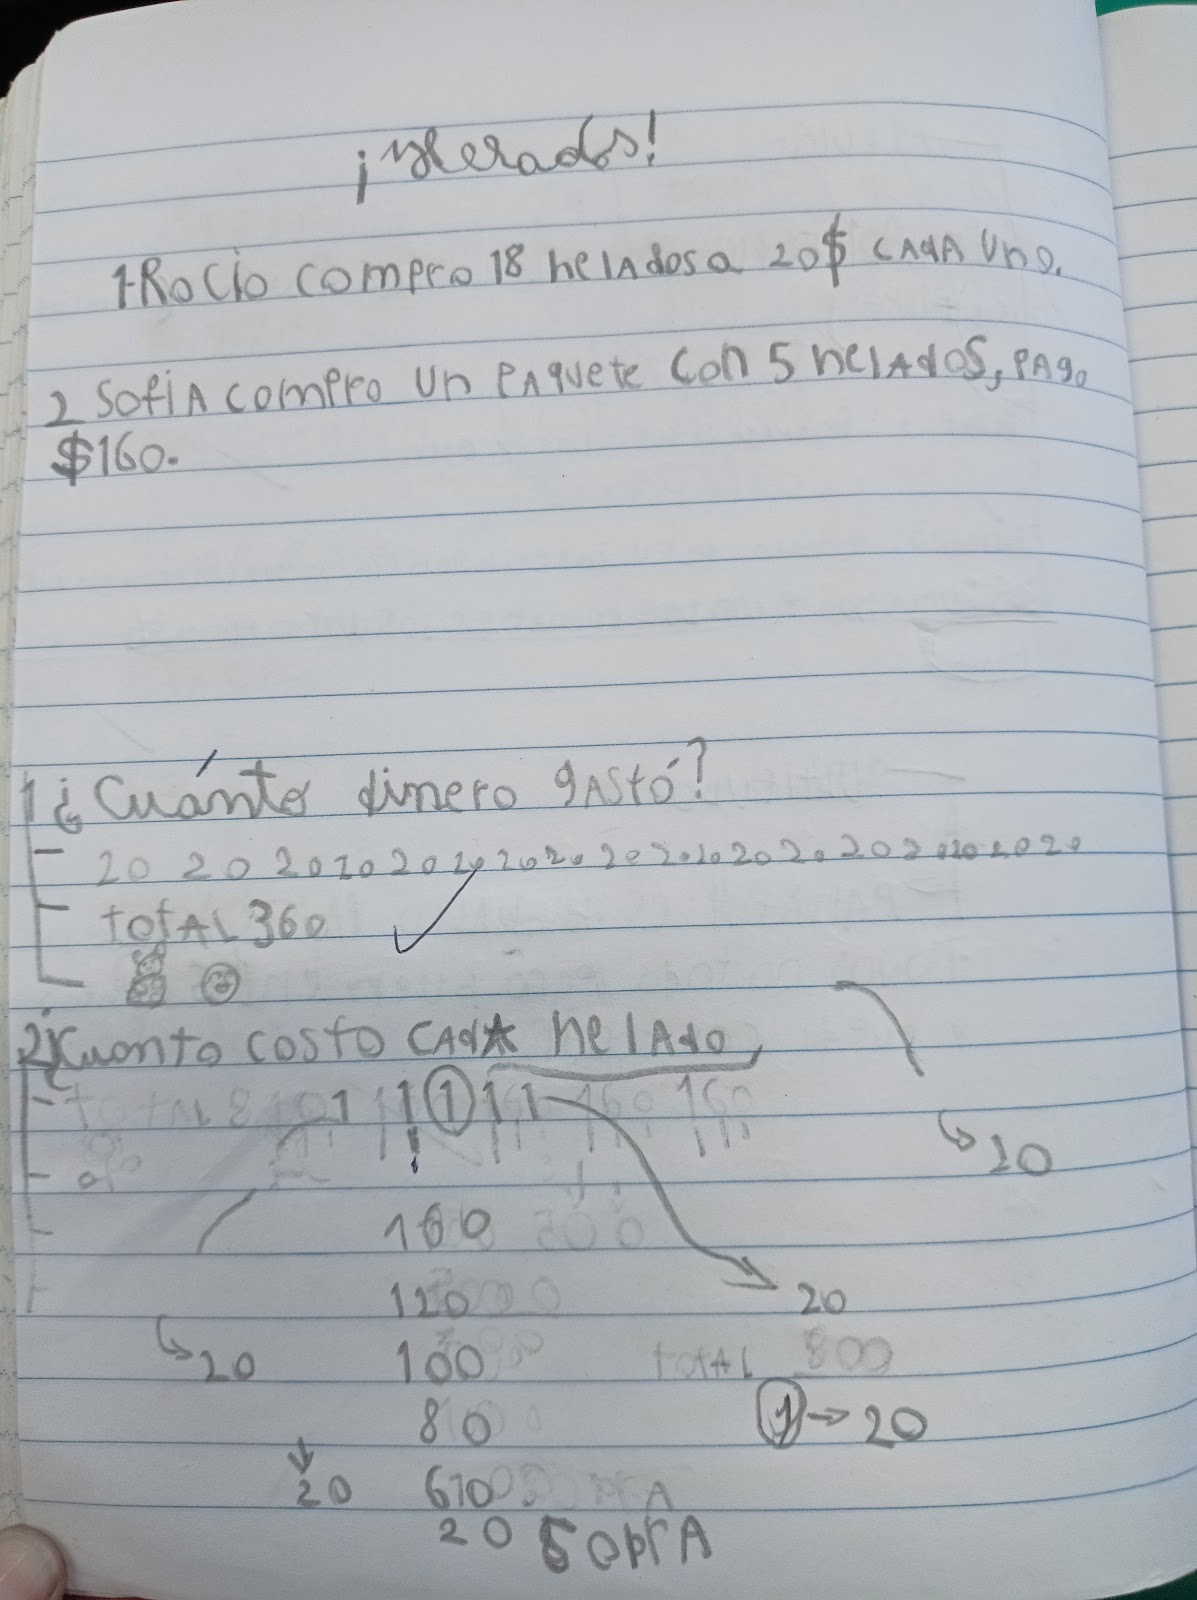 ¡Helados!
1-Rocio compro 18 helados a 20$ cada uno.
2 Sofia compro un paquete con 5 helados, pago
$160.
1 ¿Cuánto dinero gastó?
- 20 20 20 20 20 20 20 20 20 20 20 20 20 20 20 20 20 20
- total 360
2 ¿Cuanto costo cada helado
- total 8 1 1 1 1 1 160 160
20
100
120 20
20 100 total 800
80 1 → 20
20 60
20 5 opra